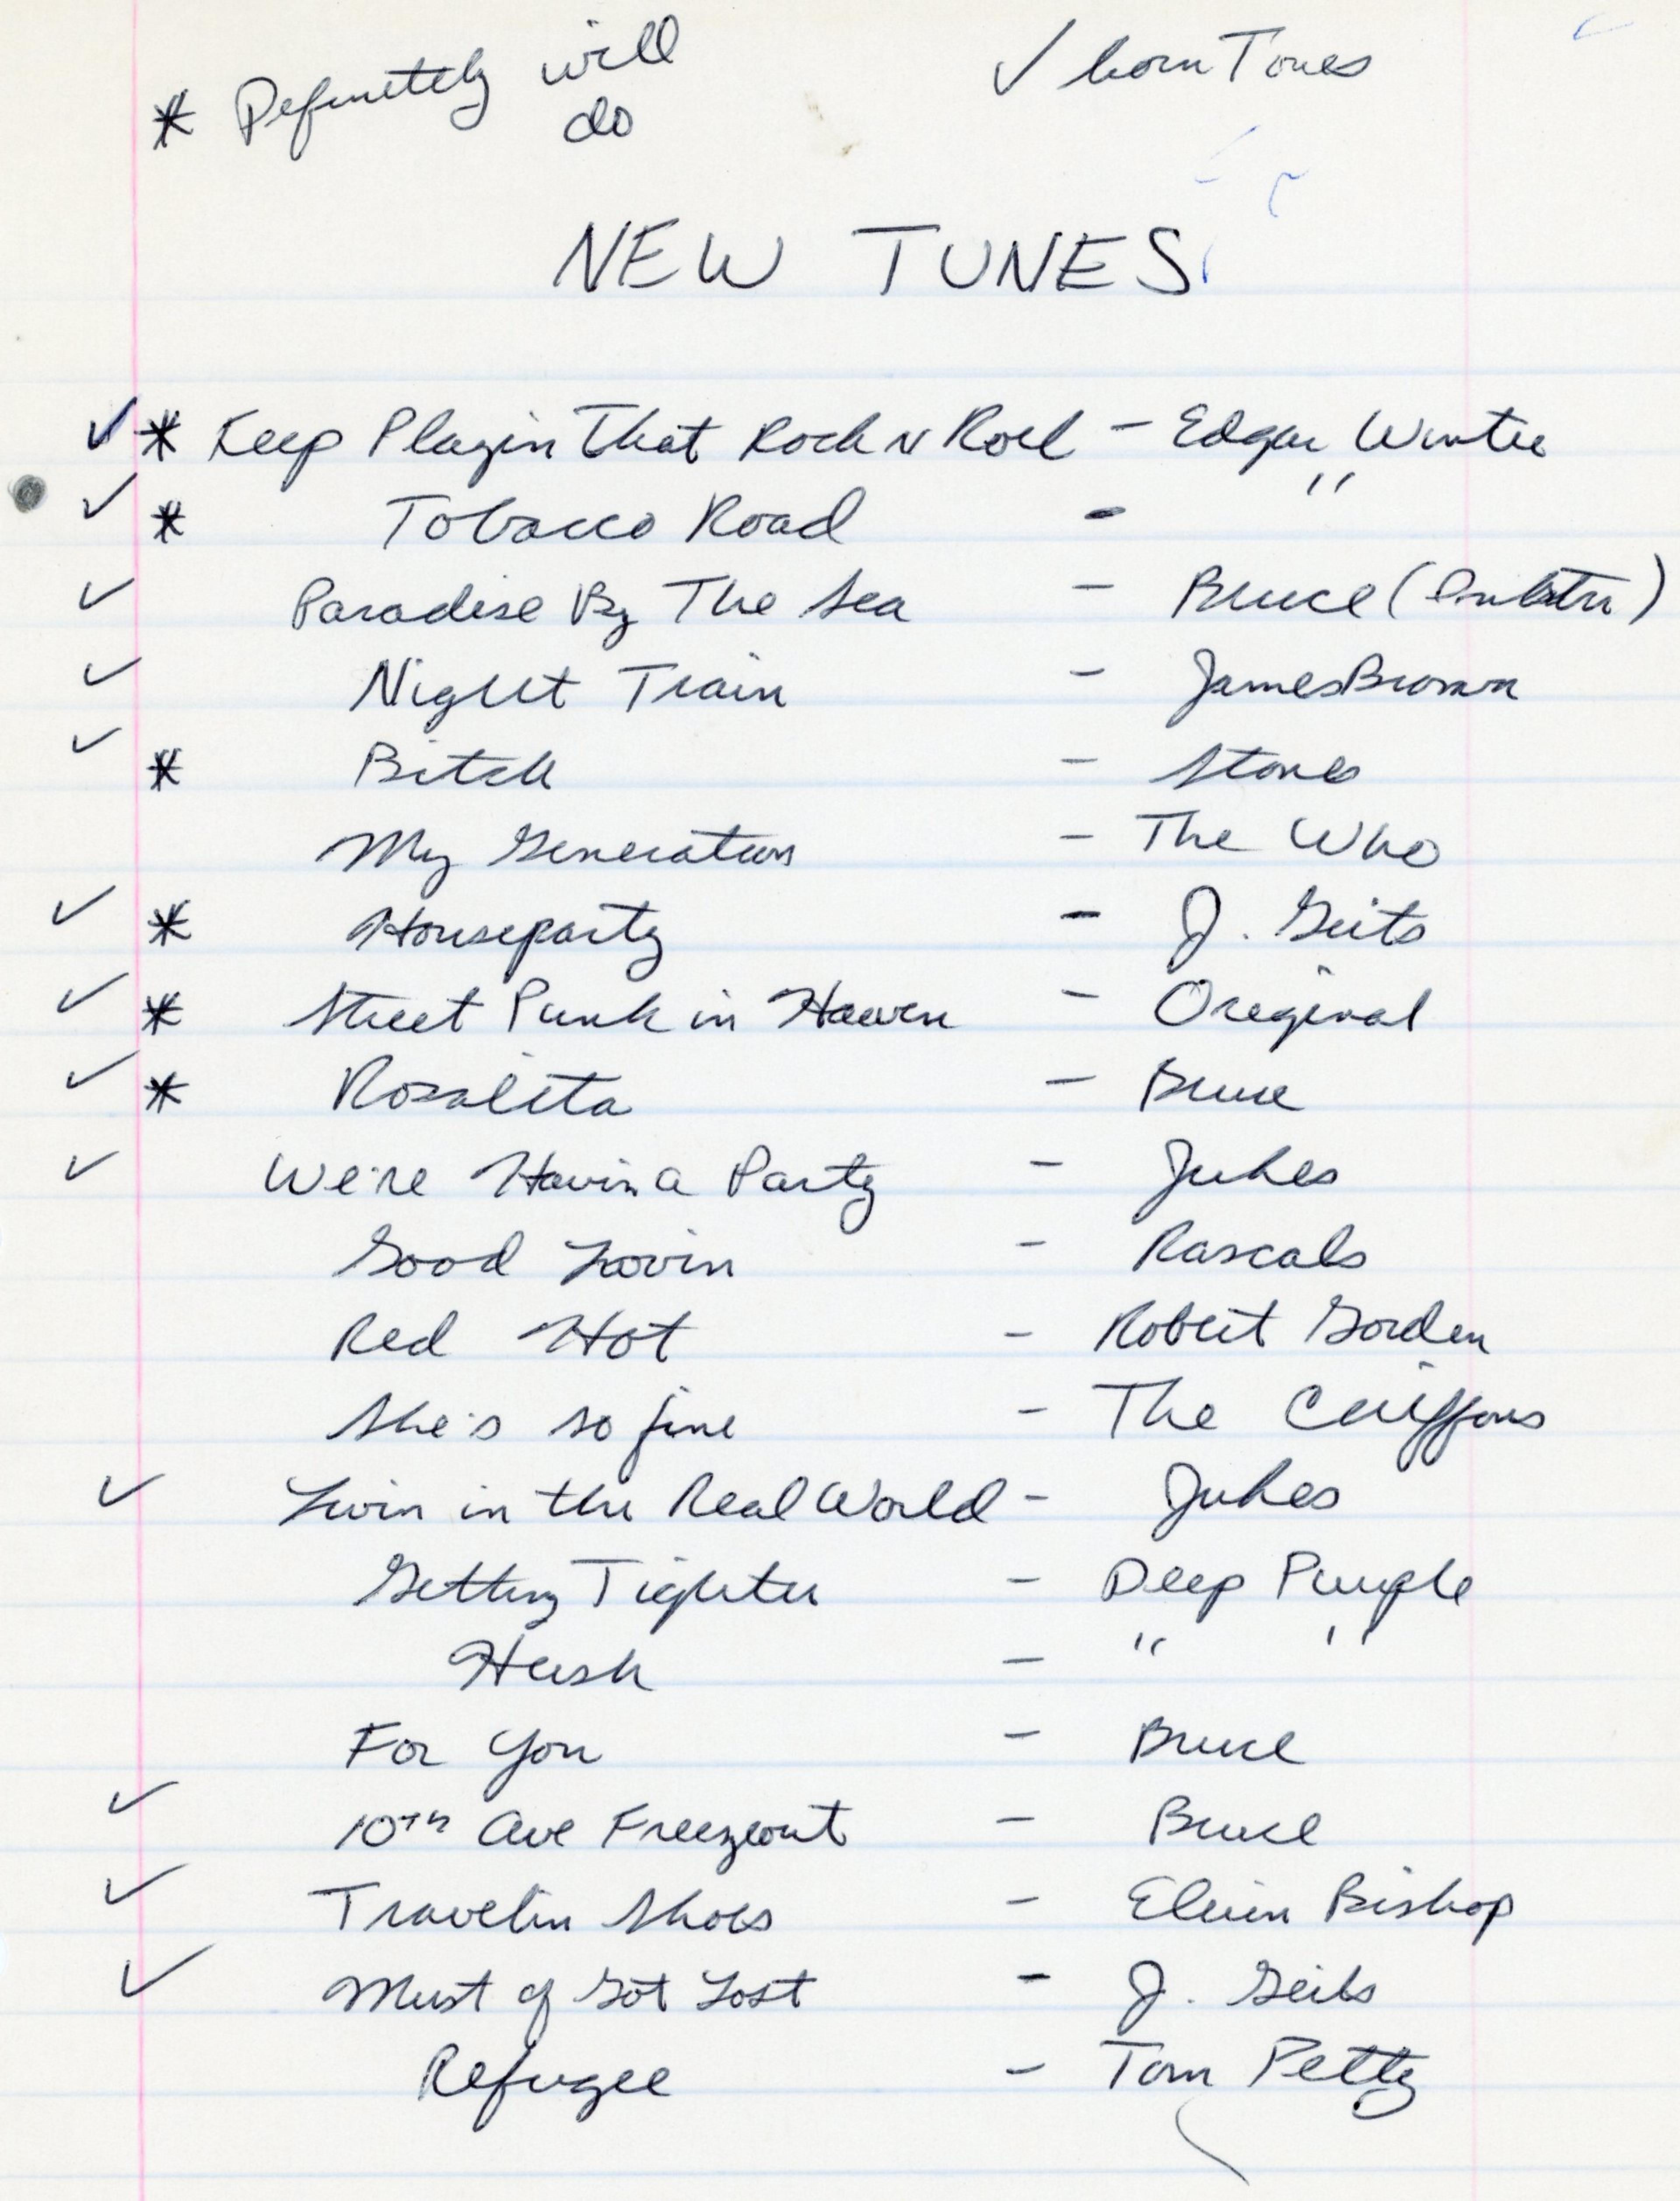 * Definitely will do
✓ horn Tones
NEW TUNES
✓ * Keep Playin That Rock N Roll - Edgar Winter
✓ * Tobacco Road - "
✓ Paradise By The Sea - Bruce (
✓ Night Train - James Brown
✓ * Bitch - Stones
My Generation - The Who
✓ * Houseparty - J. Geils
✓ * Street Punk in Heaven - Original
✓ * Rosalita - Bruce
✓ We're Havin a Party - Jukes
Good Lovin - Rascals
Red Hot - Robert Gorden
She's so fine - The Chiffons
✓ Livin in the Real World - Jukes
Getting Tighter - Deep Purple
Hush - " "
For You - Bruce
✓ 10th Ave Freezeout - Bruce
✓ Travelin Shoes - Elvin Bishop
✓ Must of Got Lost - J. Geils
Refugee - Tom Petty